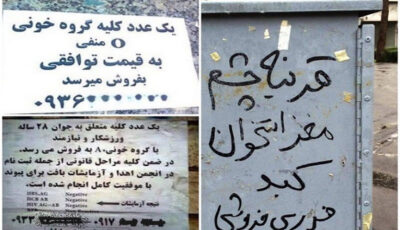 یک عدد کلیه گروه خونی
O منفی
به قیمت توافقی
بفروش میرسد
۰۹۳۶
یک عدد کلیه متعلق به جوان ۲۸ ساله
ورزشکار و نیازمند
با گروه خونی A+ به فروش می رسد.
در ضمن کلیه مراحل قانونی از جمله ثبت نام
در انجمن اهدا و آزمایشات بافت برای پیوند
با موفقیت کامل انجام شده است.
نتیجه آزمایشات
HBS.AG Negative
HCB AB Negative
HIV.AG-AB Negative
Negative
۰۹۳۳ ۰۹۱۷
قرنیه چشم
مغز استخوان
کبد
فوری فروشی